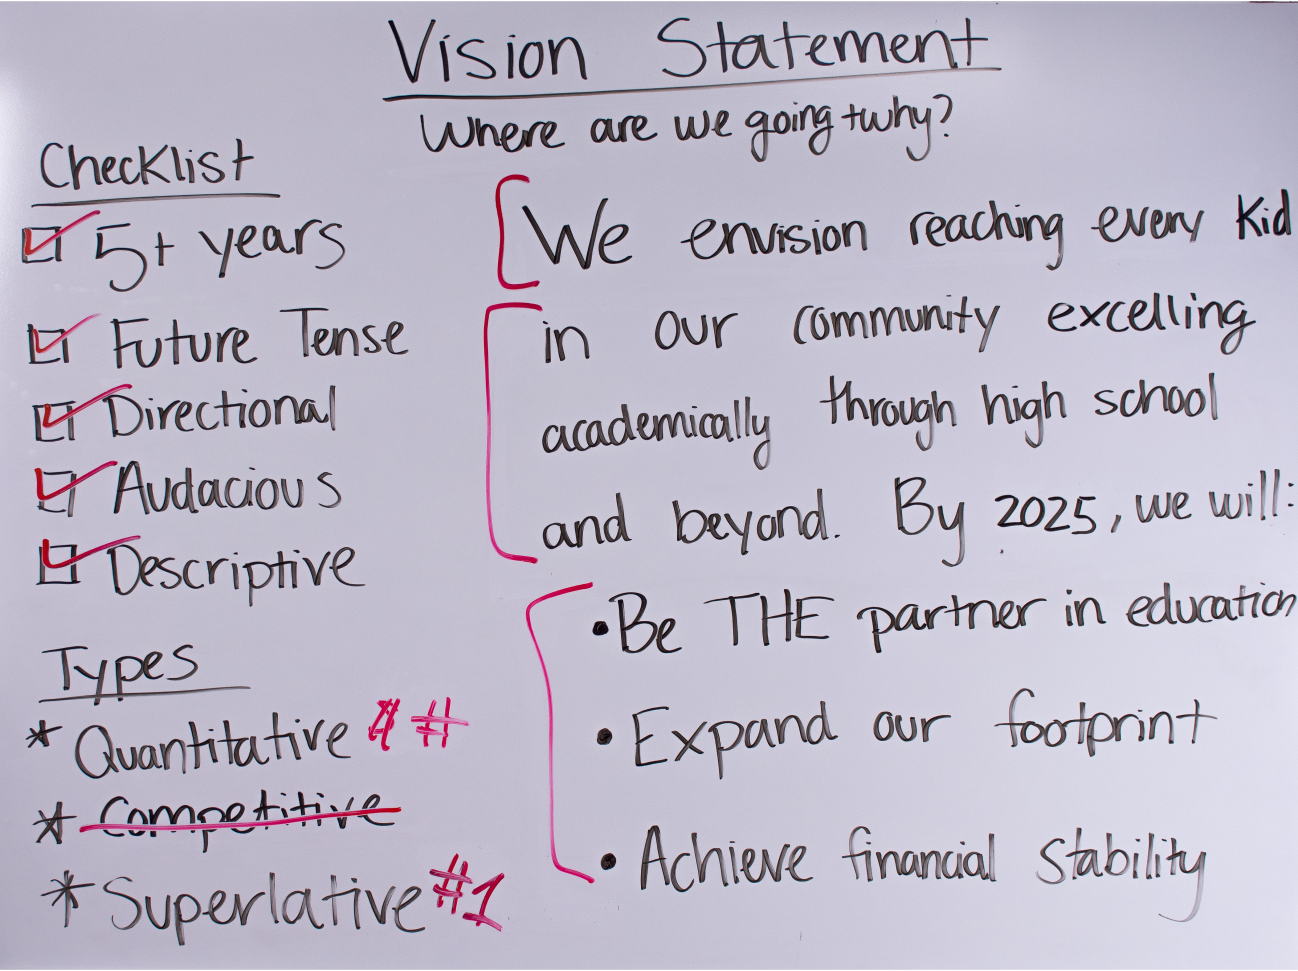 Vision Statement
Where are we going + why?
Checklist
5+ years
Future Tense
Directional
Audacious
Descriptive
Types
* Quantitative # #
* Competitive
* Superlative #1
We envision reaching every Kid
in our community excelling
academically through high school
and beyond. By 2025, we will:
• Be THE partner in education
• Expand our footprint
• Achieve financial stability